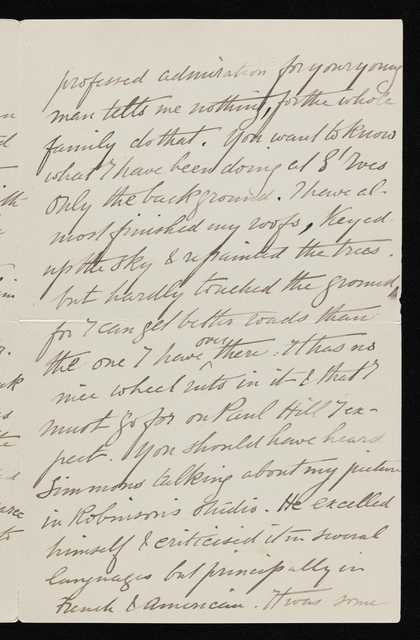 professed admiration for your young
man tells me nothing, for the whole
family do that. You want to know
what I have been doing at S' Ives
Only the background. I have al-
most finished my roofs, Keyed
up the sky & repainted the trees.
but hardly touched the ground,
for I can get better roads than
the one I have over there. It has no
nice wheel ruts in it & that I
must go for on Paul Hill I ex-
pect. You should have heard
Simmons talking about my picture
in Robinson's studio. He excelled
himself & criticised it in several
languages but principally in
French & American. It was some